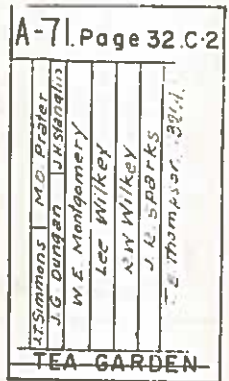 A-71. Page 32. C-2
J.T. Simmons | M.O. Prater
J.G. Dungan | J.H. Slanglin
W.E. Montgomery
Lee Wilkey
Wilkey
J. Sparks
Thompson
TEA GARDEN